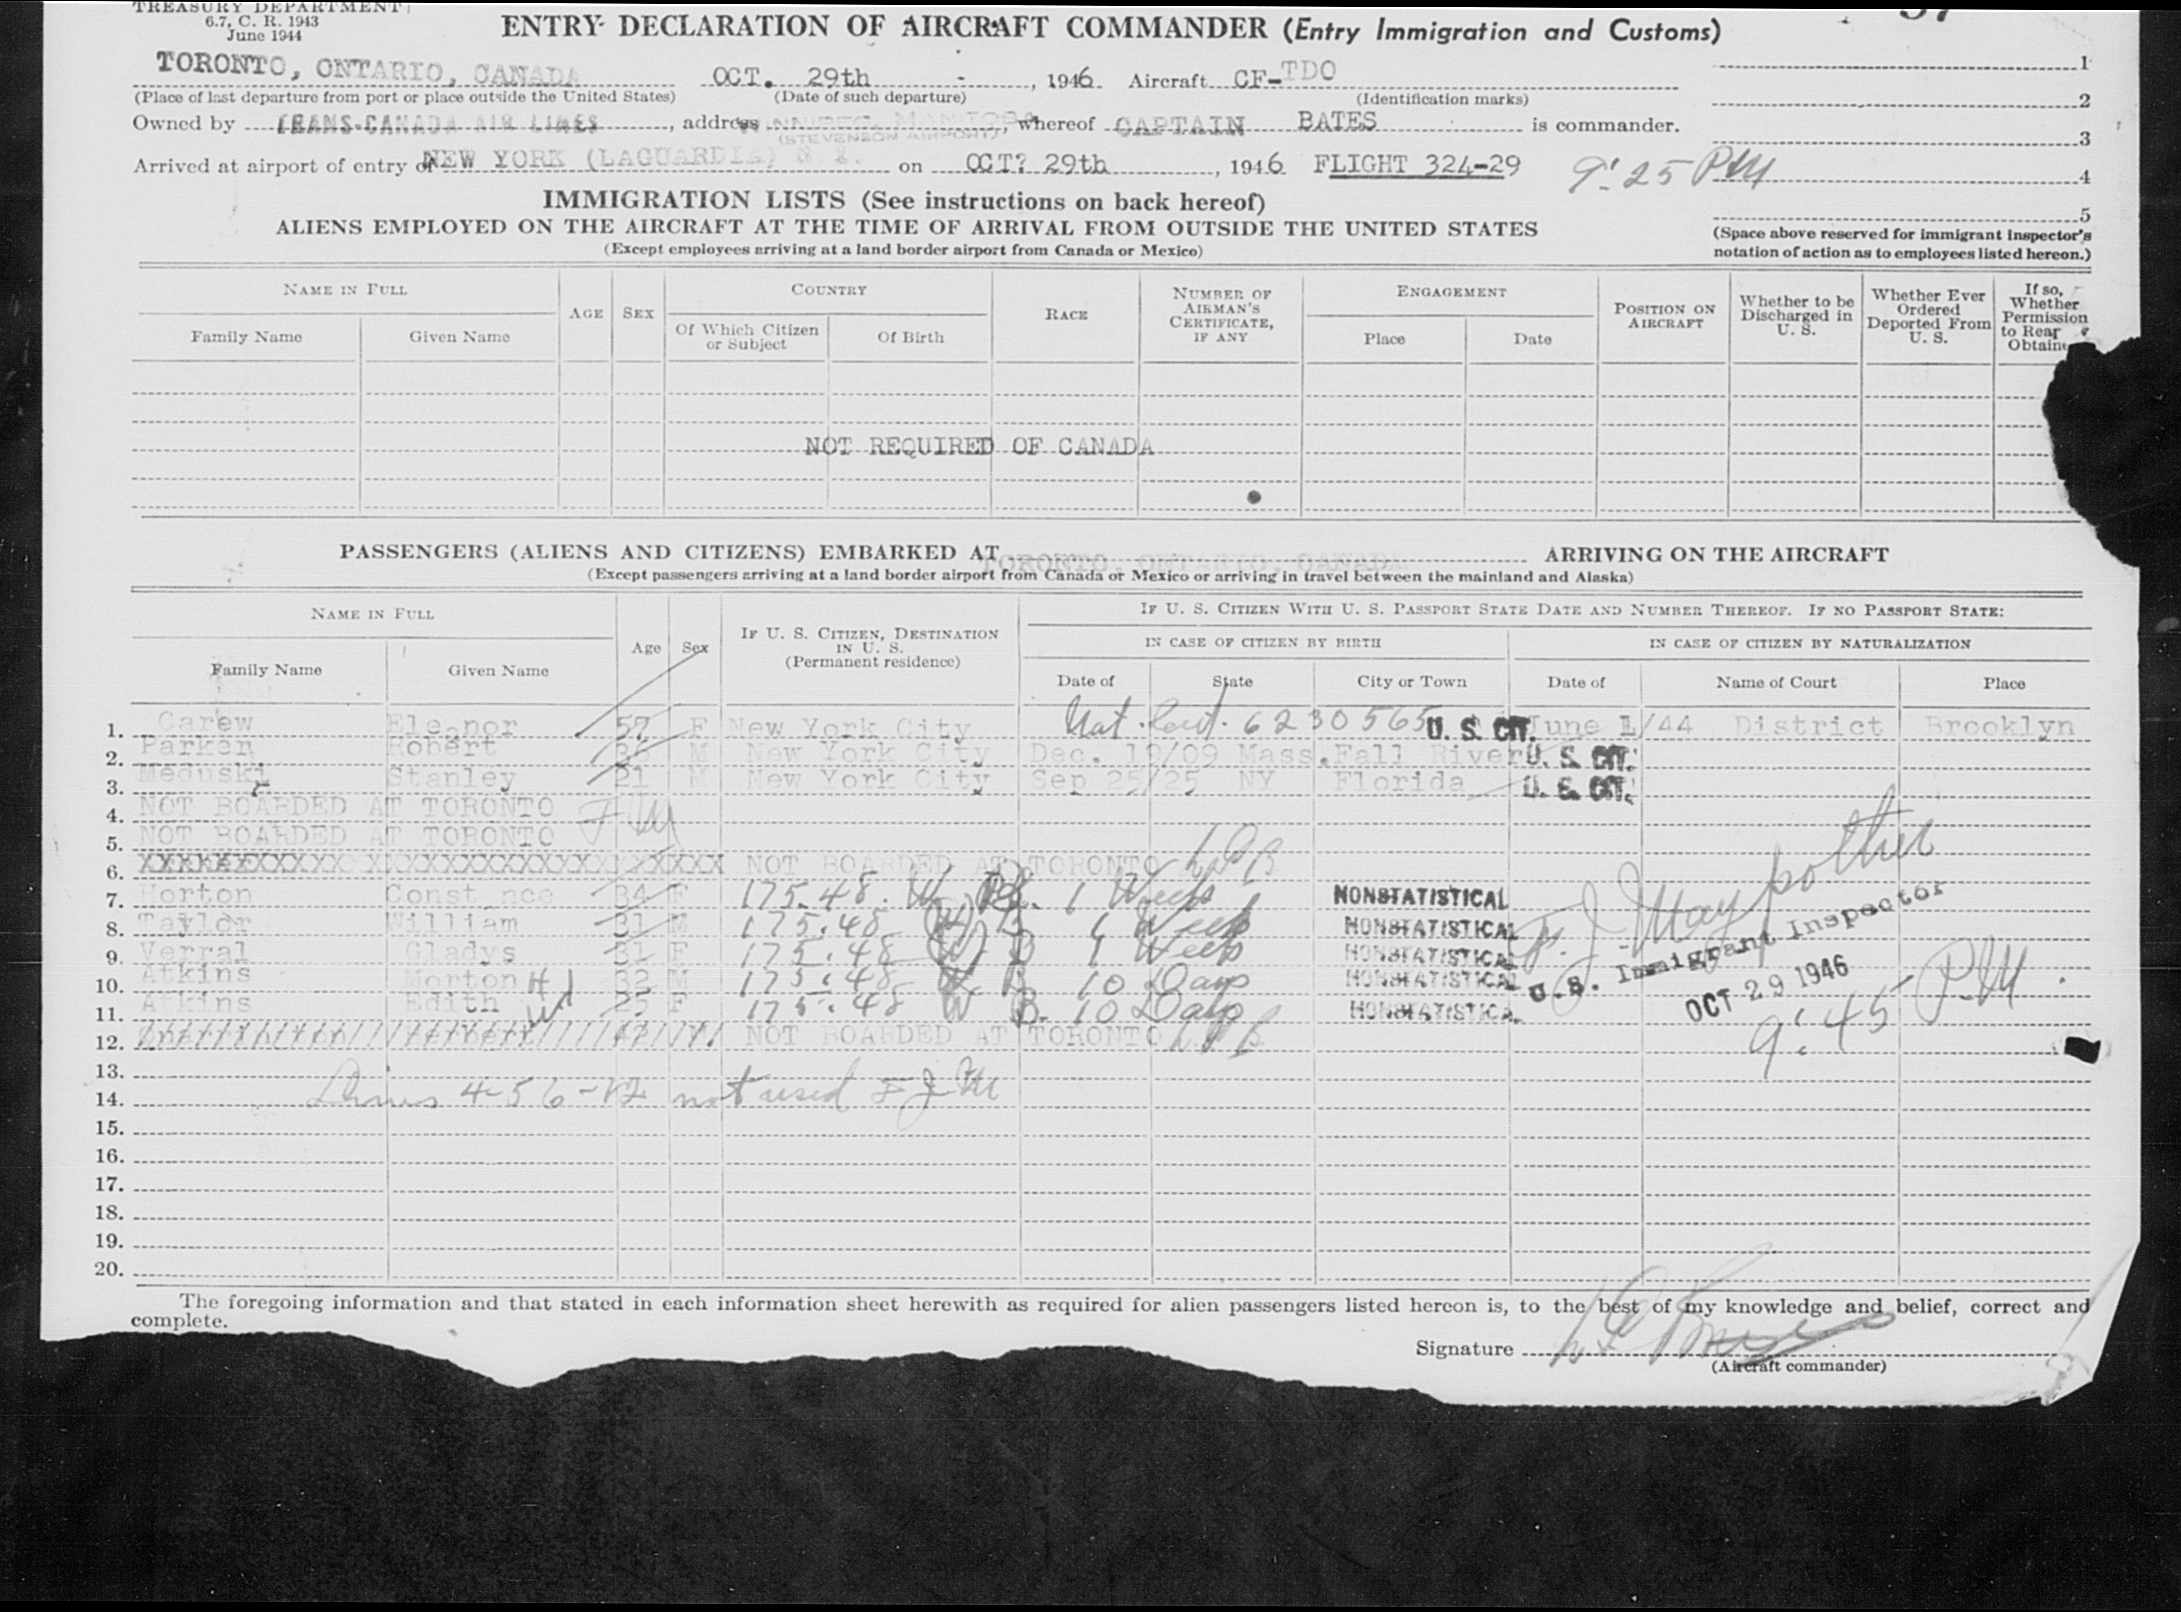 TREASURY DEPARTMENT
6.7, C. R. 1943
June 1944
ENTRY DECLARATION OF AIRCRAFT COMMANDER (Entry Immigration and Customs)
TORONTO, ONTARIO, CANADA OCT. 29th - , 1946 Aircraft CF-TDO 1
(Place of last departure from port or place outside the United States) (Date of such departure) (Identification marks)
2
Owned by TRANS-CANADA AIR LINES , address (STEVENSON AIRPORT) , whereof CAPTAIN BATES is commander.
3
Arrived at airport of entry of NEW YORK (LAGUARDIA) N. Y. on OCT? 29th , 1946 FLIGHT 324-29 9:25 PM 4
IMMIGRATION LISTS (See instructions on back hereof)
5
ALIENS EMPLOYED ON THE AIRCRAFT AT THE TIME OF ARRIVAL FROM OUTSIDE THE UNITED STATES
(Except employees arriving at a land border airport from Canada or Mexico)
(Space above reserved for immigrant inspector's
notation of action as to employees listed hereon.)
NAME IN FULL AGE SEX COUNTRY RACE NUMBER OF AIRMAN'S CERTIFICATE, IF ANY ENGAGEMENT POSITION ON AIRCRAFT Whether to be Discharged in U. S. Whether Ever Ordered Deported From U. S. If so, Whether Permission to Rear
Family Name Given Name Of Which Citizen or Subject Of Birth Place Date
NOT REQUIRED OF CANADA
PASSENGERS (ALIENS AND CITIZENS) EMBARKED AT TORONTO, ONTARIO, CANADA ARRIVING ON THE AIRCRAFT
(Except passengers arriving at a land border airport from Canada or Mexico or arriving in travel between the mainland and Alaska)
NAME IN FULL Age Sex IF U. S. CITIZEN, DESTINATION IN U. S. (Permanent residence) IF U. S. CITIZEN WITH U. S. PASSPORT STATE DATE AND NUMBER THEREOF. IF NO PASSPORT STATE:
IN CASE OF CITIZEN BY BIRTH IN CASE OF CITIZEN BY NATURALIZATION
Family Name Given Name Date of State City or Town Date of Name of Court Place
1. Carew Eleanor 57 F New York City Nat. Cert. 6230565 U. S. CIT. June 1/44 District Brooklyn
2. Parker Robert 36 M New York City Dec. 19/09 Mass. Fall River U. S. CIT.
3. Meduski Stanley 21 M New York City Sep 25/25 NY Florida U. S. CIT.
4. NOT BOARDED AT TORONTO
5. NOT BOARDED AT TORONTO
6. NOT BOARDED AT TORONTO
7. Horton Constance 34 F 175.48. W B. 1 Week NONSTATISTICAL
8. Taylor William 31 M 175.48 W B 1 Week NONSTATISTICAL
9. Verral Gladys 31 F 175.48 W B 1 Week NONSTATISTICAL
10. Atkins Morton H 32 M 175.48 W B 10 Days NONSTATISTICAL
11. Atkins Edith W 25 F 175.48 W B. 10 Days NONSTATISTICAL
F. J. Maypother
U. S. Immigrant Inspector
OCT 29 1946
9:45 PM.
12. NOT BOARDED AT TORONTO
13.
14. Lines 4-5 6-12 not used F J M
15.
16.
17.
18.
19.
20.
The foregoing information and that stated in each information sheet herewith as required for alien passengers listed hereon is, to the best of my knowledge and belief, correct and
complete.
Signature
(Aircraft commander)